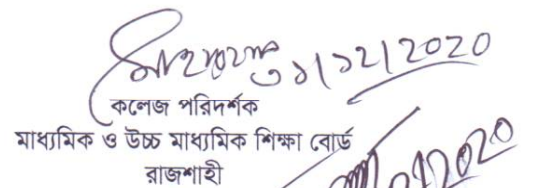 ০১/১২/2020
কলেজ পরিদর্শক
মাধ্যমিক ও উচ্চ মাধ্যমিক শিক্ষা বোর্ড
রাজশাহী